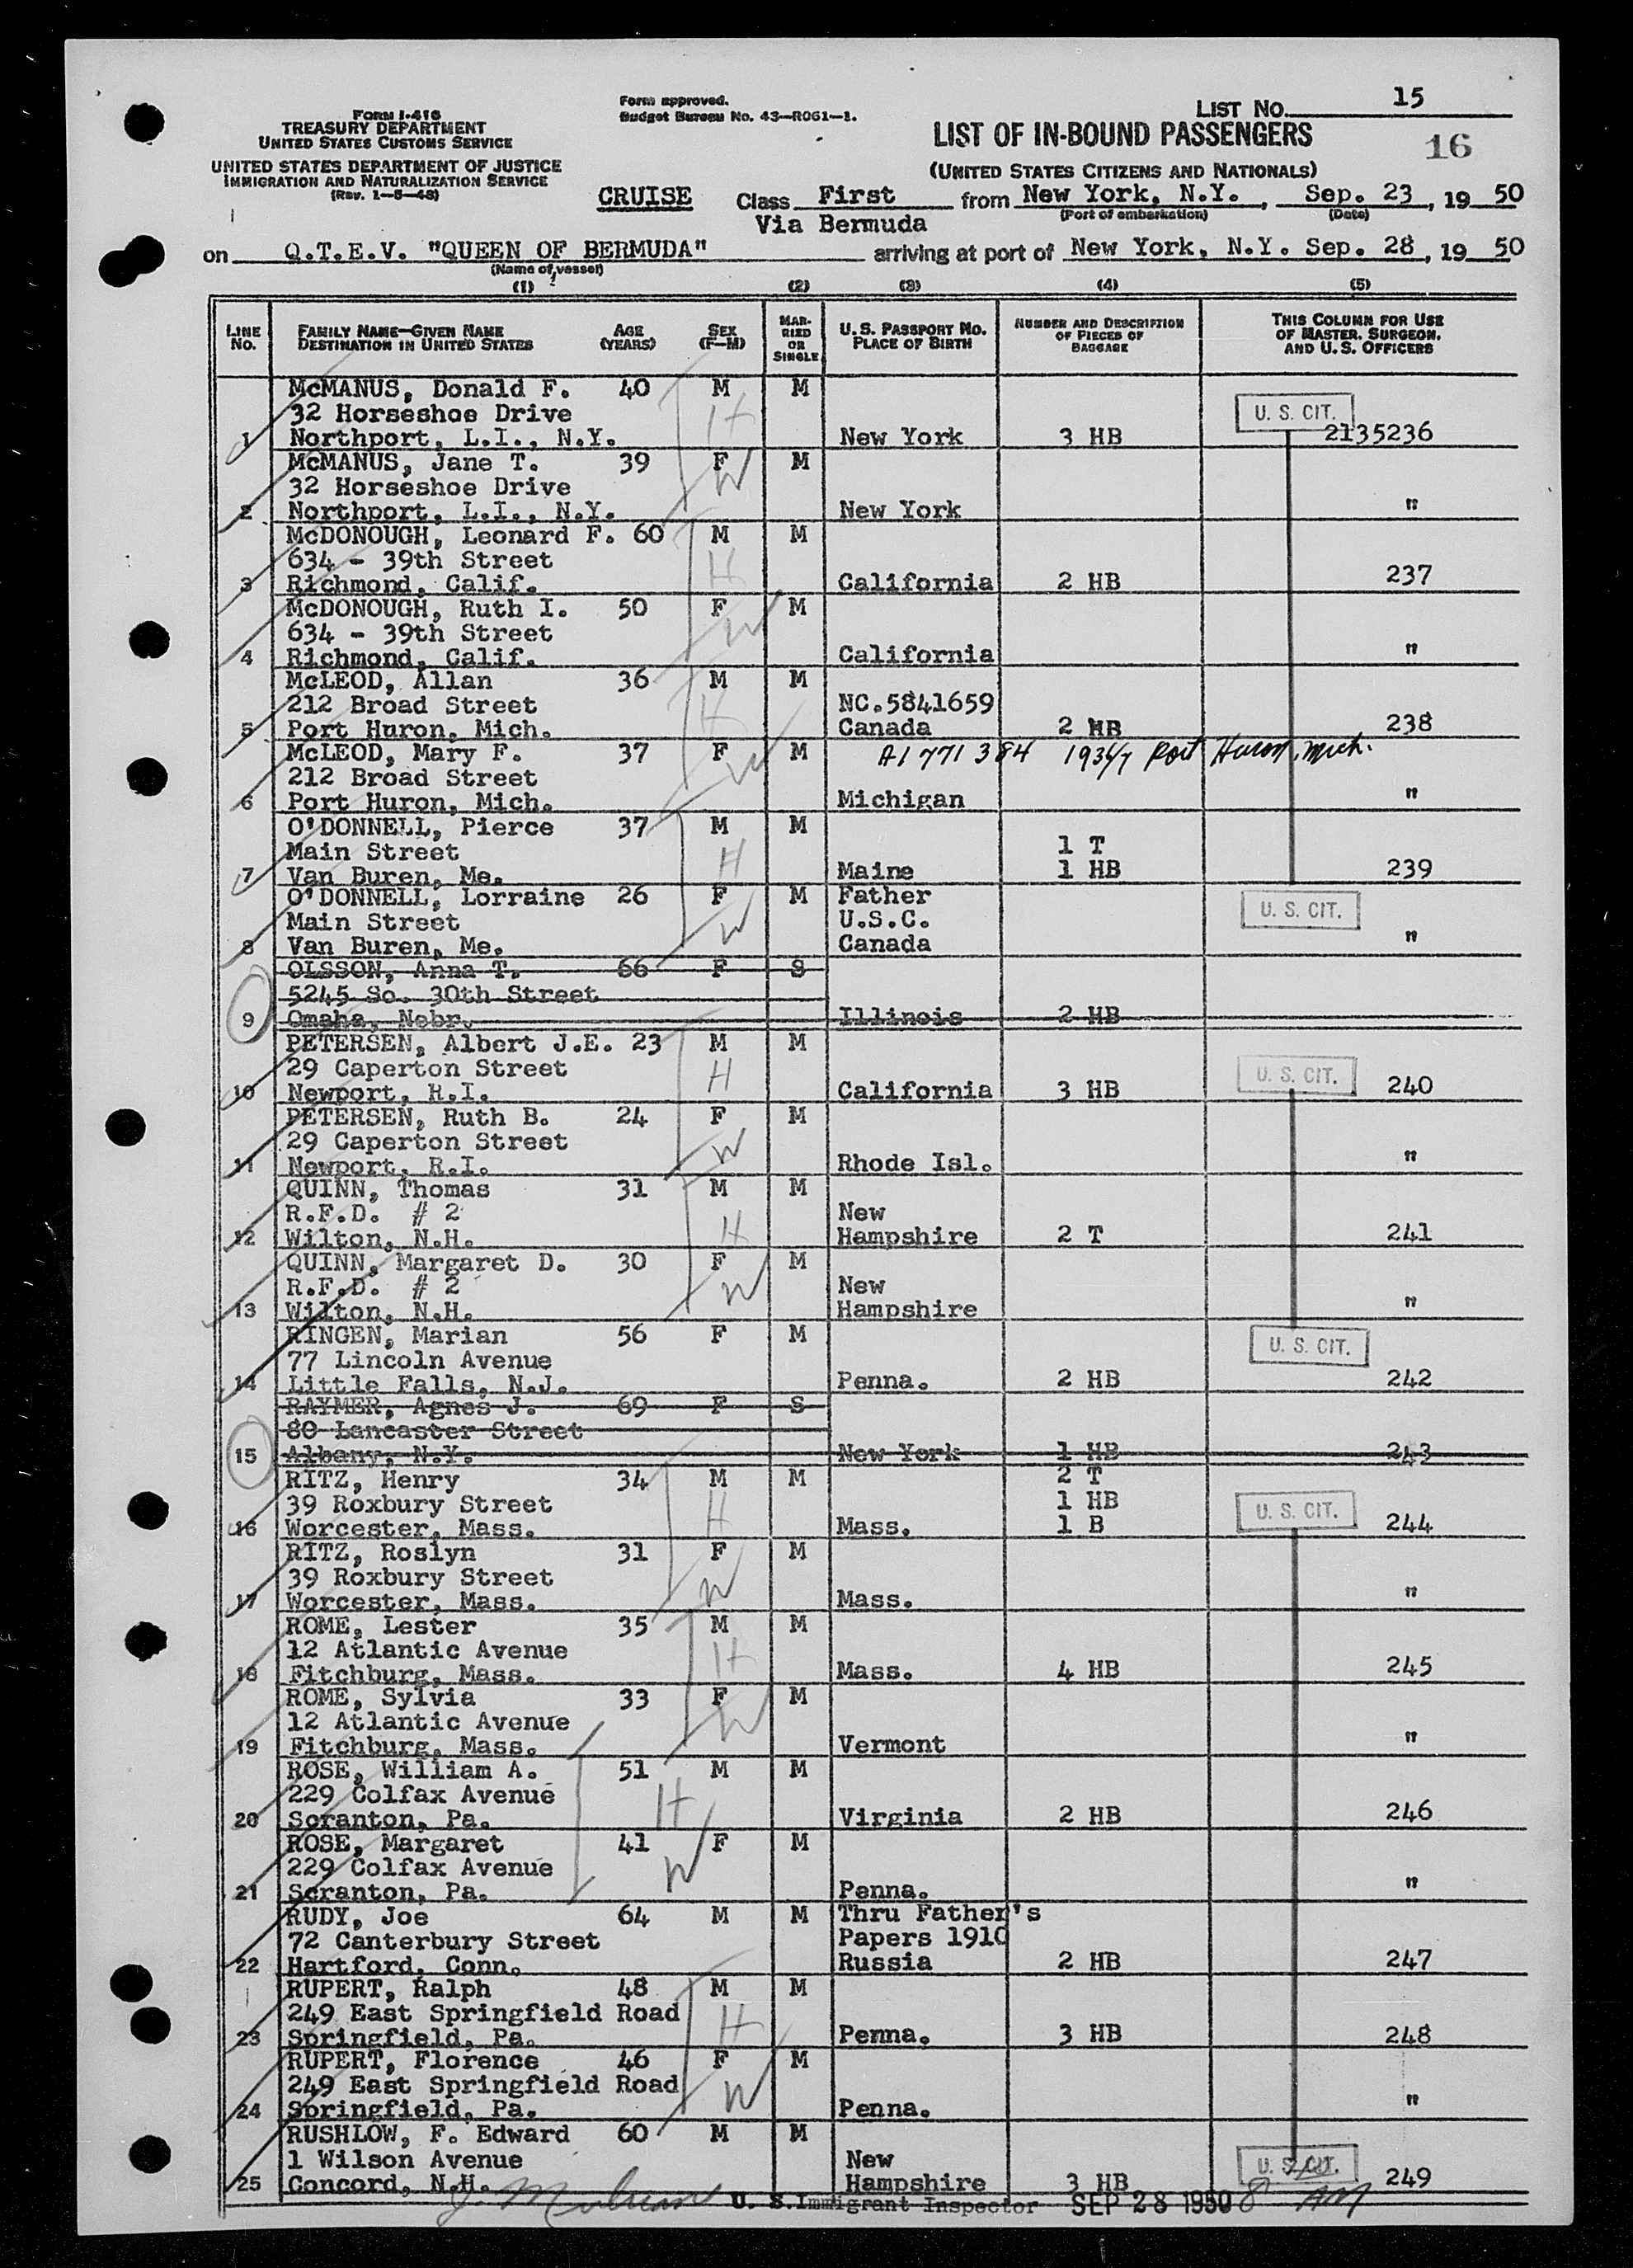 Form I-416
TREASURY DEPARTMENT
UNITED STATES CUSTOMS SERVICE
UNITED STATES DEPARTMENT OF JUSTICE
IMMIGRATION AND NATURALIZATION SERVICE
(Rev. 1-5-48)
Form approved.
Budget Bureau No. 43-R061-1.
LIST No. 15
LIST OF IN-BOUND PASSENGERS
16
(UNITED STATES CITIZENS AND NATIONALS)
CRUISE Class First from New York, N.Y., Sep. 23, 1950
(Port of embarkation) (Date)
Via Bermuda
on Q.T.E.V. "QUEEN OF BERMUDA" arriving at port of New York, N.Y. Sep. 28, 1950
(Name of vessel)
(1) (2) (3) (4) (5)
LINE No. FAMILY NAME—GIVEN NAME DESTINATION IN UNITED STATES AGE (YEARS) SEX (F—M) MARRIED OR SINGLE U.S. PASSPORT No. PLACE OF BIRTH NUMBER AND DESCRIPTION OF PIECES OF BAGGAGE THIS COLUMN FOR USE OF MASTER, SURGEON, AND U.S. OFFICERS
McMANUS, Donald F. 40 M M
32 Horseshoe Drive H U. S. CIT.
1 Northport, L.I., N.Y. New York 3 HB 2135236
McMANUS, Jane T. 39 F M
32 Horseshoe Drive W
2 Northport, L.I., N.Y. New York "
McDONOUGH, Leonard F. 60 M M
634 - 39th Street H
3 Richmond, Calif. California 2 HB 237
McDONOUGH, Ruth I. 50 F M
634 - 39th Street W
4 Richmond, Calif. California "
McLEOD, Allan 36 M M
212 Broad Street H NC.5841659
5 Port Huron, Mich. Canada 2 HB 238
McLEOD, Mary F. 37 F M A1 771 384 1936/7 Port Huron, Mich.
212 Broad Street W
6 Port Huron, Mich. Michigan "
O'DONNELL, Pierce 37 M M
Main Street H 1 T
7 Van Buren, Me. Maine 1 HB 239
O'DONNELL, Lorraine 26 F M Father
Main Street W U.S.C. U. S. CIT.
8 Van Buren, Me. Canada "
OLSSON, Anna T. 66 F S
5245 So. 30th Street
9 Omaha, Nebr. Illinois 2 HB
PETERSEN, Albert J.E. 23 M M
29 Caperton Street H U. S. CIT.
10 Newport, R.I. California 3 HB 240
PETERSEN, Ruth B. 24 F M
29 Caperton Street W
11 Newport, R.I. Rhode Isl. "
QUINN, Thomas 31 M M
R.F.D. # 2 H New
12 Wilton, N.H. Hampshire 2 T 241
QUINN, Margaret D. 30 F M
R.F.D. # 2 W New
13 Wilton, N.H. Hampshire "
RINGEN, Marian 56 F M
77 Lincoln Avenue U. S. CIT.
14 Little Falls, N.J. Penna. 2 HB 242
RAYMER, Agnes J. 69 F S
80 Lancaster Street
15 Albany, N.Y. New York 1 HB 243
RITZ, Henry 34 M M 2 T
39 Roxbury Street H 1 HB U. S. CIT.
16 Worcester, Mass. Mass. 1 B 244
RITZ, Roslyn 31 F M
39 Roxbury Street W
17 Worcester, Mass. Mass. "
ROME, Lester 35 M M
12 Atlantic Avenue H
18 Fitchburg, Mass. Mass. 4 HB 245
ROME, Sylvia 33 F M
12 Atlantic Avenue W
19 Fitchburg, Mass. Vermont "
ROSE, William A. 51 M M
229 Colfax Avenue H
20 Scranton, Pa. Virginia 2 HB 246
ROSE, Margaret 41 F M
229 Colfax Avenue W
21 Scranton, Pa. Penna. "
RUDY, Joe 64 M M Thru Father's
72 Canterbury Street Papers 1910
22 Hartford, Conn. Russia 2 HB 247
RUPERT, Ralph 48 M M
249 East Springfield Road H
23 Springfield, Pa. Penna. 3 HB 248
RUPERT, Florence 46 F M
249 East Springfield Road W
24 Springfield, Pa. Penna. "
RUSHLOW, F. Edward 60 M M
1 Wilson Avenue New U. S. CIT.
25 Concord, N.H. Hampshire 3 HB 249
U. S. Immigrant Inspector SEP 28 1950 8 AM